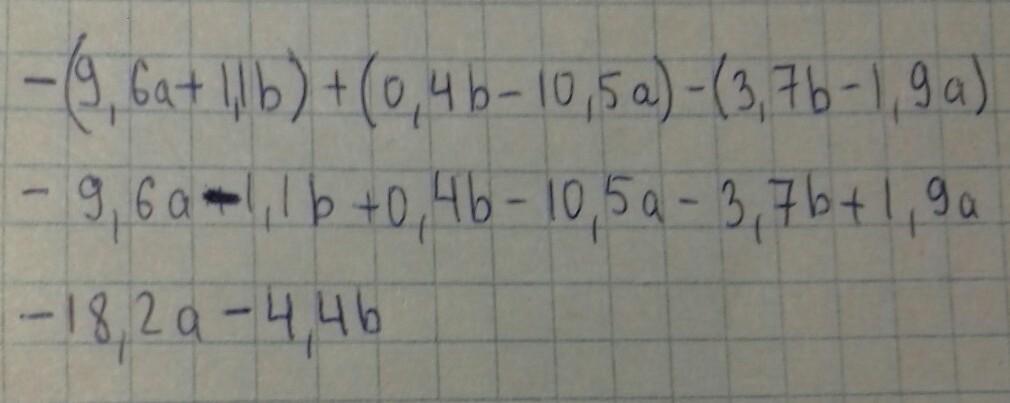 -(9,6a+1,1b)+(0,4b-10,5a)-(3,7b-1,9a)
- 9,6a-1,1b+0,4b-10,5a-3,7b+1,9a
-18,2a-4,4b